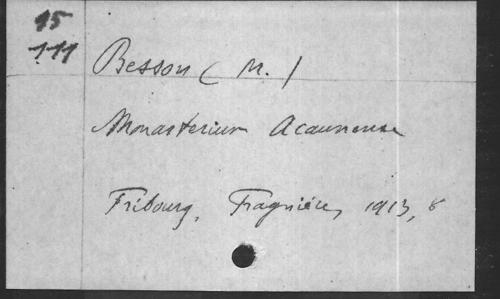 15
111
Besson (M.)
Monasterium Acaunense
Fribourg, Fragnière, 1913, 8